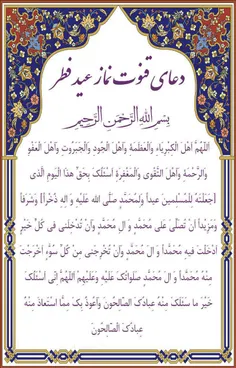 دعای قنوت نماز عید فطر
بِسْمِ اللهِ الرَّحْمٰنِ الرَّحِيْمِ
اَللّهُمَّ اَهْلَ الْكِبْرِیاءِ وَالْعَظَمَةِ وَاَهْلَ الْجُودِ وَالْجَبَرُوتِ وَاَهْلَ الْعَفْوِ
وَالرَّحْمَةِ وَاَهْلَ التَّقْوى وَالْمَغْفِرَةِ اَسْئَلُکَ بِحَقِّ هذَا الْیَومِ الَّذى
اجَعَلْتَهُ لِلْمُسْلِمینَ عیداً وَلِمُحَمَّدٍ صَلَّى اللهُ عَلَیْهِ وَ الِهِ ذُخْراً وَشَرَفاً
وَمَزْیداً اَنْ تُصَلِّىَ عَلى مُحَمَّدٍ وَ الِ مُحَمَّدٍ وَاَنْ تُدْخِلَنى فى كُلِّ خَیْرٍ
اَدْخَلْتَ فیهِ مُحَمَّداً وَ الَ مُحَمَّدٍ وَاَنْ تُخْرِجَنى مِنْ كُلِّ سُوَّءٍ اَخْرَجْتَ
مِنْهُ مُحَمَّداً وَ الَ مُحَمَّدٍ صَلَواتُکَ عَلَیْهِ وَعَلَیْهِمْ اَللّهُمَّ اِنّى اَسْئَلُکَ
خَیْرَ ما سَئَلَکَ مِنْهُ عِبادُکَ الصّالِحُونَ وَاَعُوذُ بِکَ مِمَّا اسْتَعاذَ مِنْهُ
عِبادُکَ الصّالِحُونَ